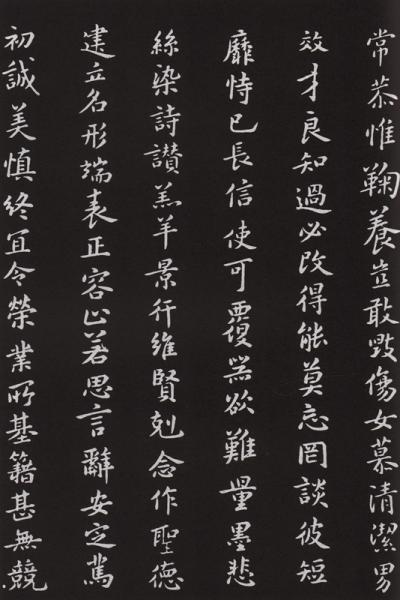 常恭惟鞠養豈敢毀傷女慕清潔男
效才良知過必改得能莫忘罔談彼短
靡恃己長信使可覆器欲難量墨悲
絲染詩讚羔羊景行維賢剋念作聖德
建立名形端表正容止若思言辭安定篤
初誠美慎終宜令榮業所基籍甚無競